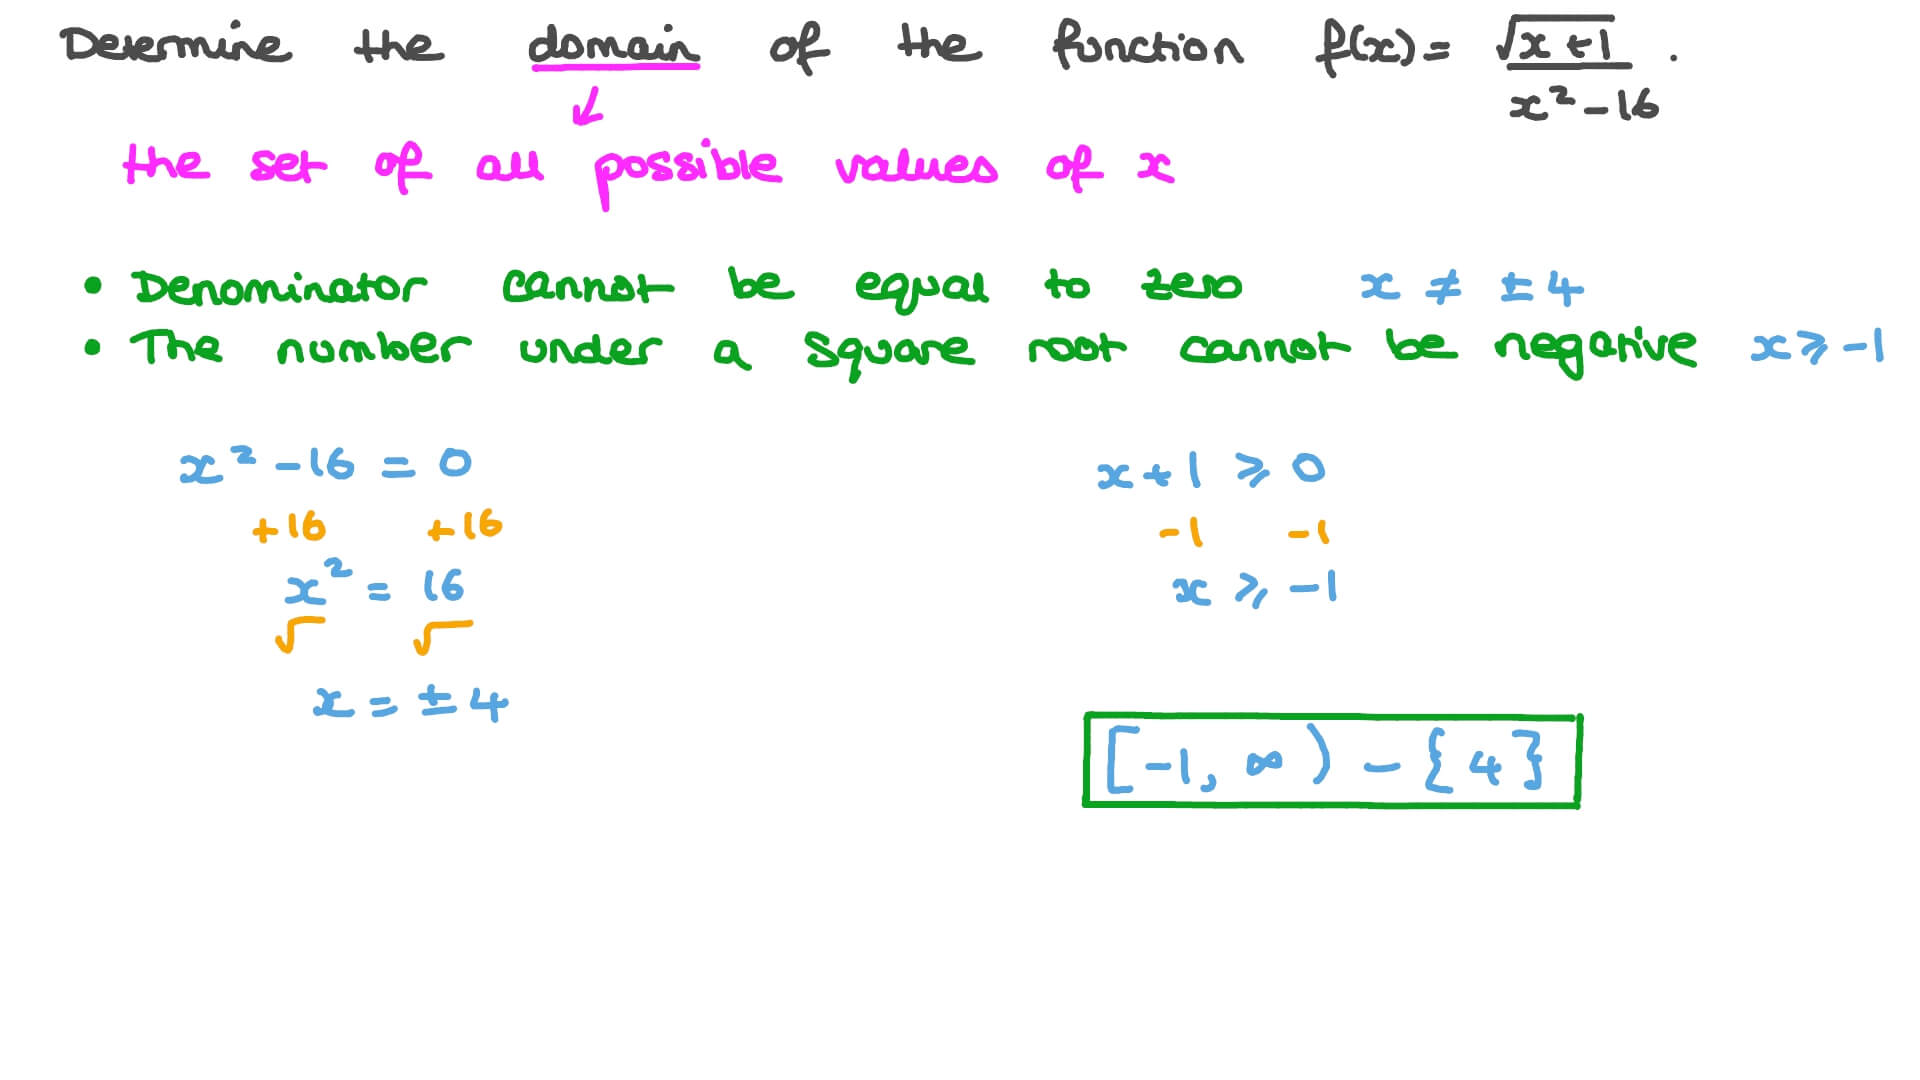 Determine the domain of the function f(x) = √(x+1) / (x² - 16) .
the set of all possible values of x
• Denominator cannot be equal to zero x ≠ ± 4
• The number under a square root cannot be negative x ⩾ -1
x² - 16 = 0
+16 +16
x² = 16
√ √
x = ± 4
x + 1 ⩾ 0
-1 -1
x ⩾ -1
[-1, ∞) - {4}